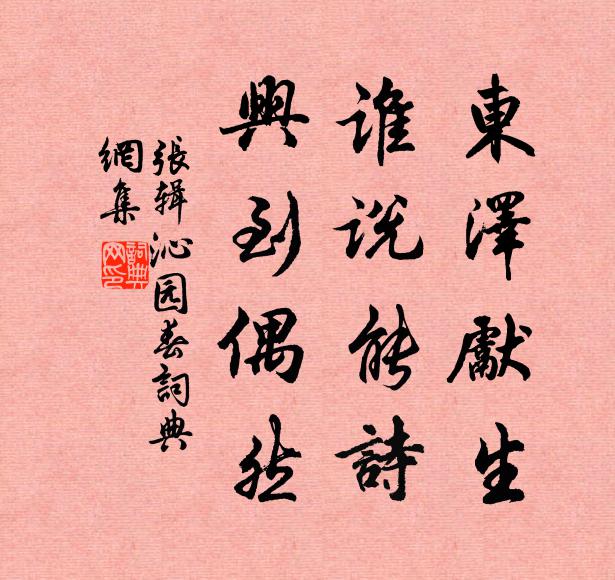 東澤獻生
谁说能詩
興到偶然
張辑沁园春詞典
網集
詞典
网印